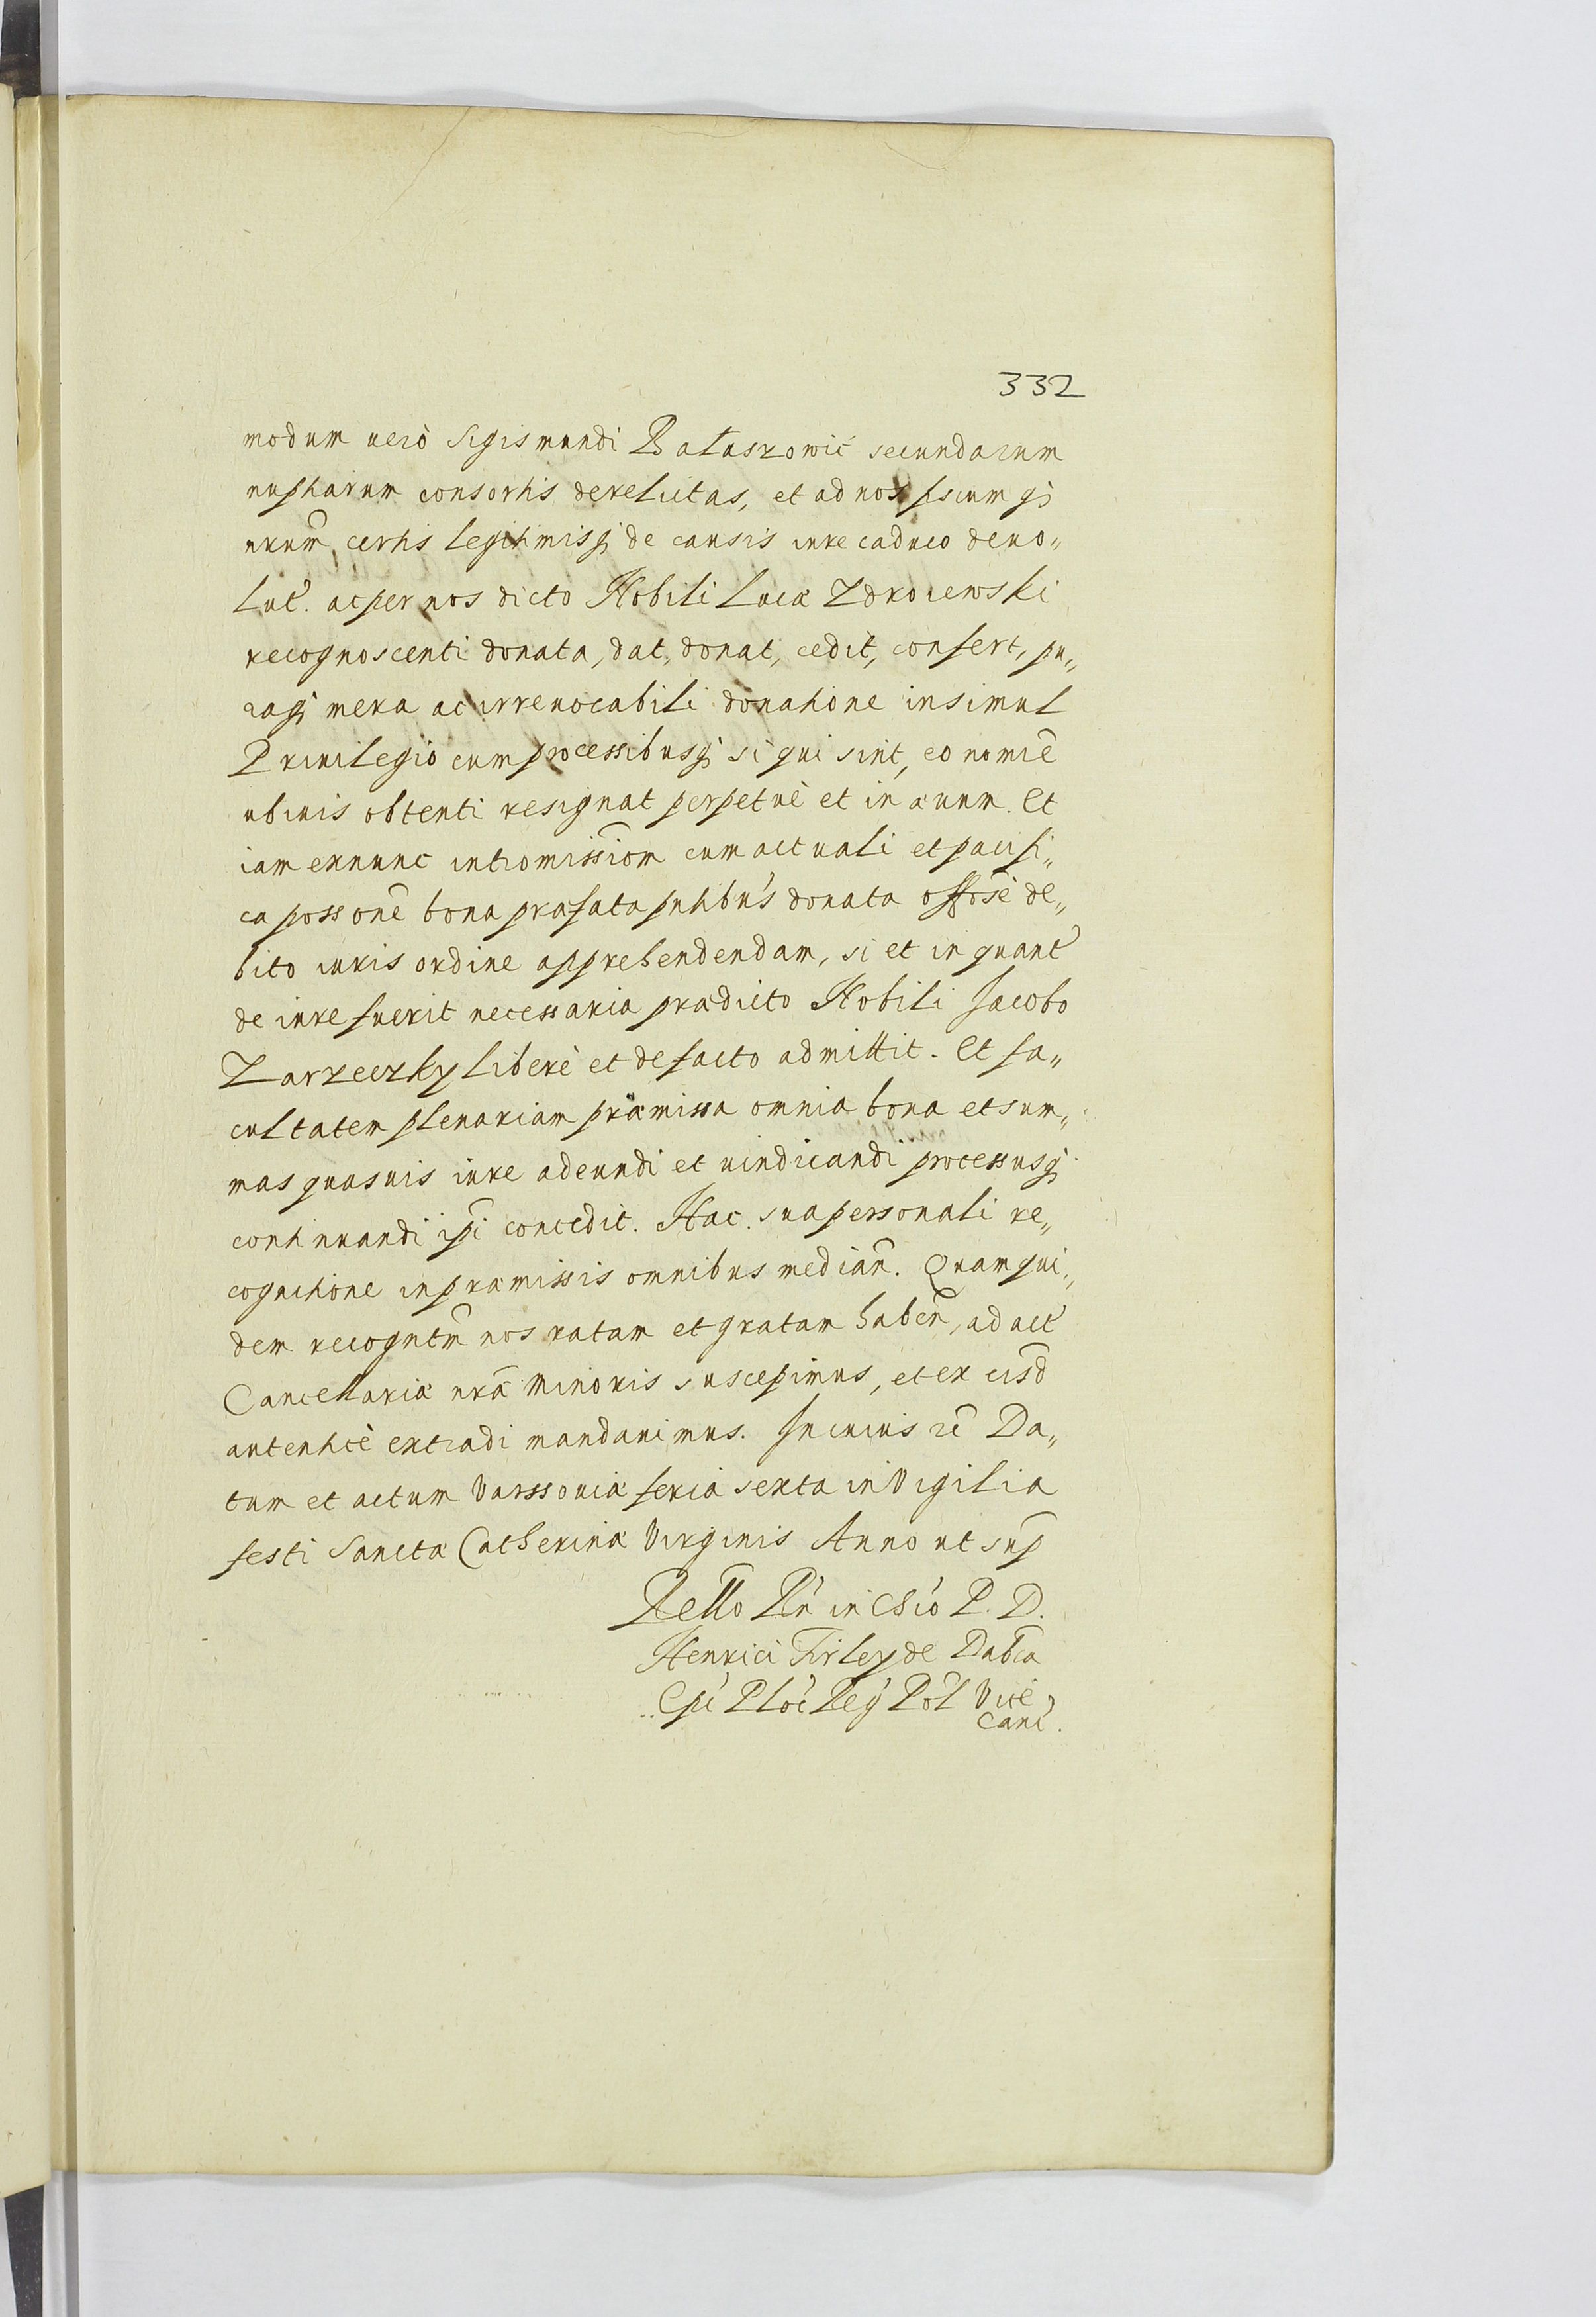 332
modum uerò Sigismundi Bałaszowic secundarum
nuptiarum consortis derelictas, et ad nos fiscum qȝ
nrum̃, certis legitimisqȝ de causis iure caduco deuo„
lut̃. ac per nos dicto Nobili Lucæ Zdrorewski
recognoscenti donata, dat, donat, cedit, confert, pu„
raqȝ mera ac irreuocabili donatione insimul
Priuilegio cum processibusqȝ si qui sint, eo nomiẽ
ubiuis obtenti resignat perpetuè et in æuum. Et
iam exnunc intromissiom̃ cum actuali et pacifi„
ca possonẽ bona præfata pntibùs donata offosè de„
bito iuris ordine apprehendendam, si et in quant̃
de iure fuerit necessaria prædicto Nobili Jacobo
Zarzeczky liberè et de facto admittit. Et fa„
cultatem plenariam præmissa omnia bona et sum„
mas quasuis iure adeundi et uindicandi processusqȝ
continuandi ip̃i concedit. Hac sua personali re„
cognitione in præmissis omnibus median̄. Quam qui„
dem recogntm̃ nos ratam et gratam haben̄, ad act̃
Cancellariæ nræ̃ Minoris suscepimus, et ex eisd̃
autenticè extradi mandauimus. In cuius rẽ Da„
tum et actum Varssouiæ feria sexta in Vigilia
festi Sanctæ Catherinæ Virginis Anno ut sup̃
Rello Rñ in Chr̃o P. D.
Henrici Firley de Dabr̃ca
Ep̃i Ploc̃ Reg̃ Pol̃ Vicẽ
Canc̃.